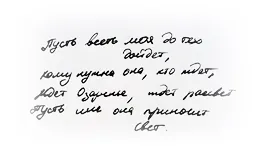 Пусть весть моя до тех
дойдет,
кому нужна она, кто ждет,
ждет Озаренье, ждет рассвет
Пусть мне она приносит
Свет.